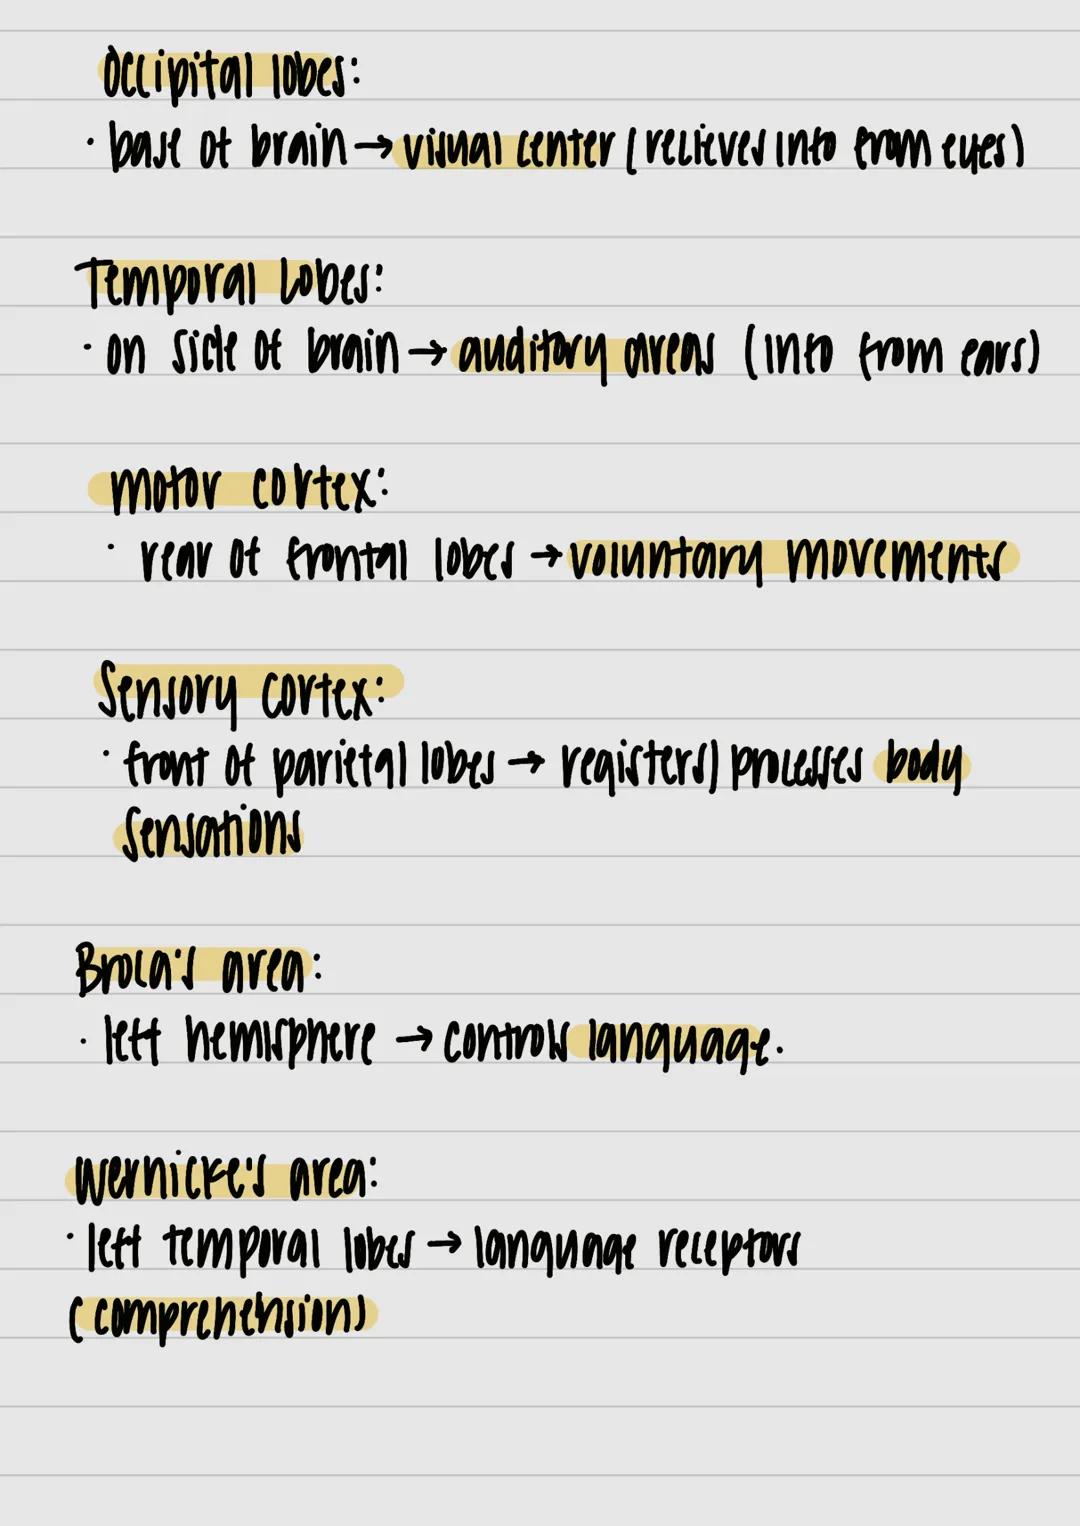 Occipital lobes:
· base of brain → visual center (recieves info from eyes)
Temporal Lobes:
· on side of brain → auditory areas (info from ears)
motor cortex:
· rear of frontal lobes → voluntary movements
Sensory cortex:
· front of parietal lobes → registers) processes body
sensations
Broca's area:
· left hemisphere → controls language.
Wernicke's area:
· left temporal lobes → language receptors
(comprehension)